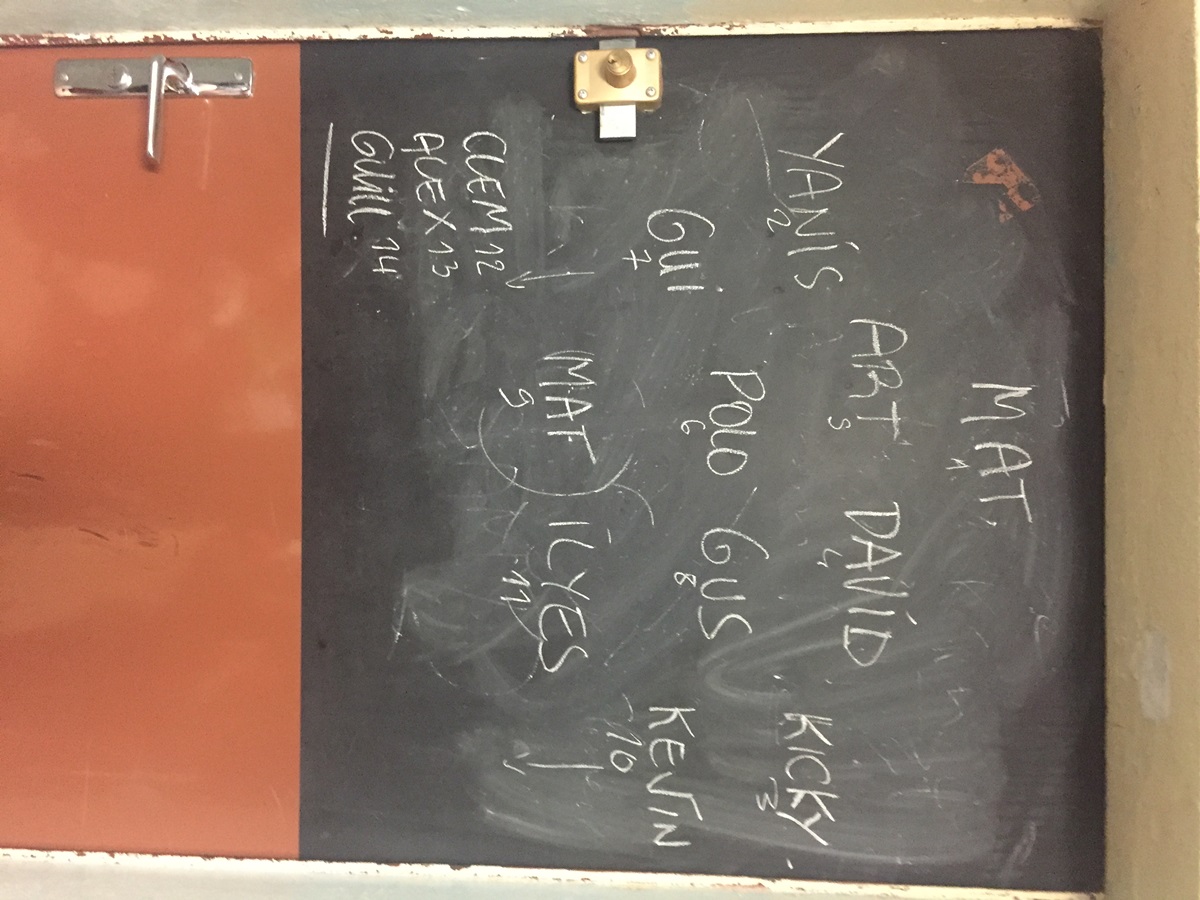 MAT
1
ART DAVID
5 4
YANIS KICKY
2 3
Gui POLO GUS KEVIN
7 6 8 10
MAT ILYES
9 11
CLEM 12
ALEX 13
Guill 14